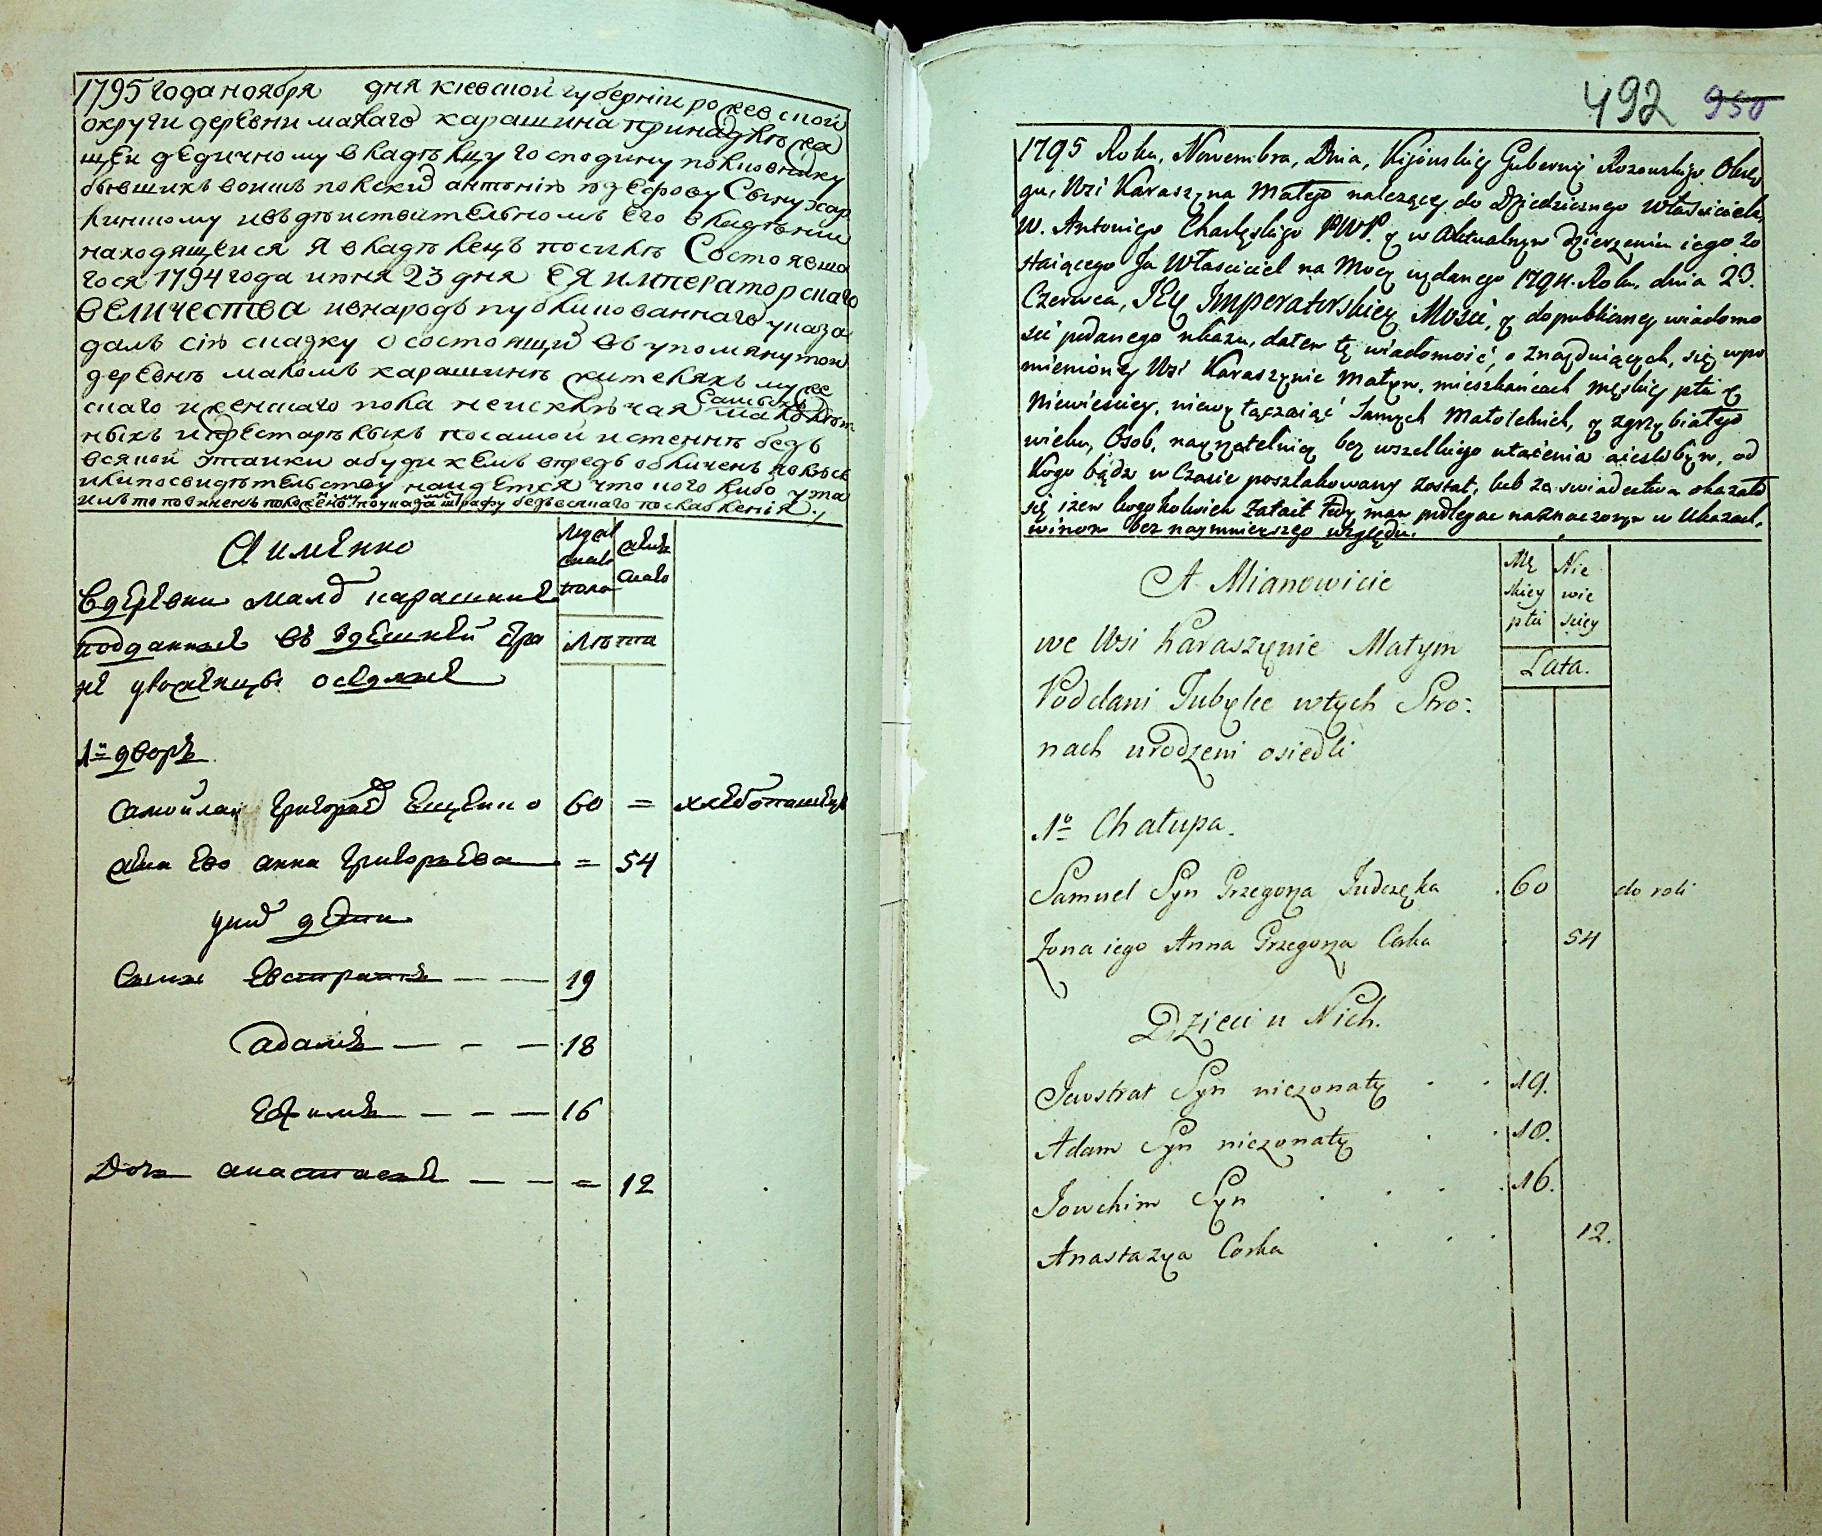 1795 года ноября дня киевской губернии рожевской
округи деревни малаго карашина принадлежа
щей дедичному владельцу господину полковнику
бывшихъ войскъ полскихъ антонию
находящейся я владелецъ посиле Состоявша
гося 1794 года июня 23 дня ЕЯ императорскаго
величества ивнародъ публикованнаго указа
далъ сию сказку о состоящих въ упомянутой
деревне маломъ карашине жителяхъ муже
скаго и женскаго пола неисключая самыхъ малолет
ныхъ и престарелыхъ посамой истенне безъ
всякой утайки а буди кемъ впредь обличенъ
или посвидетельству найдется что кого либо ута
илъ то повиненъ положенному поуказам штрафу безъ всякаго послабления.
А именно
мужеска пола
женска
вдеревни малой карашине
подданные въ здешней стра
не урожденцы оседлые
лета
1й дворъ
Самойлай Григорьев Ещенко 60 = хлебопашецъ
жена Ево анна Григорьева = 54
у них дети
Сынъ Евстратей — — 19
адамъ — - — 18
ефимъ — — — 16
Дочь анастасия — — = 12
492 950
1795 Roku, Nowembra, Dnia, Kijowskiey Gubernij Rozowskiego Okrę
gu, Wsi Karaszyna Małego należącey do Dziedzicznego Właściciela
W. Antoniego Charlęskiego PWP. y w Aktualnym dzierzeniu iego zo
staiącego Ja Własciciel na Mocy wydanego 1794. Roku. dnia 23.
Czerwca, JEy Imperatorskiey Mości, y do publiczney wiadomo
ści podanego ukazu, dałem tę wiadomość, o znayduiących, się wpo
mienioney Wsi Karaszynie Małym, mieszkańcach męskiey płci y
Niewieściey, niewyłączaiąć Samych Małoletnich, y zgrzybiałego
wieku, Osob, nayrzetelniey bez wszelkiego utaienia aieslibym, od
kogo bądz w Czasie poszlakowany został, lub za swiadectwem okazało
się izem kogokolwiek zataił tedy mam podlegac naznaczonym w Ukazach,
winom bez naymnieyszego względu.
A Mianowicie
Mę
skiey
płci
Nie
wie
sciey
we Wsi Karaszynie Małym
Poddani Tubylce wtych Stro:
nach urodzeni osiedli
Lata.
1o Chałupa.
Samuel Syn Grzegorza Judczęka . 60 do roli
Zona iego Anna Grzegorza Corka . 54
Dzieci u Nich.
Jewstrat Syn niezonaty . . 19.
Adam Syn niezonaty . . 18.
Jowchim Syn . . . . 16.
Anastazya Corka . . . 12.